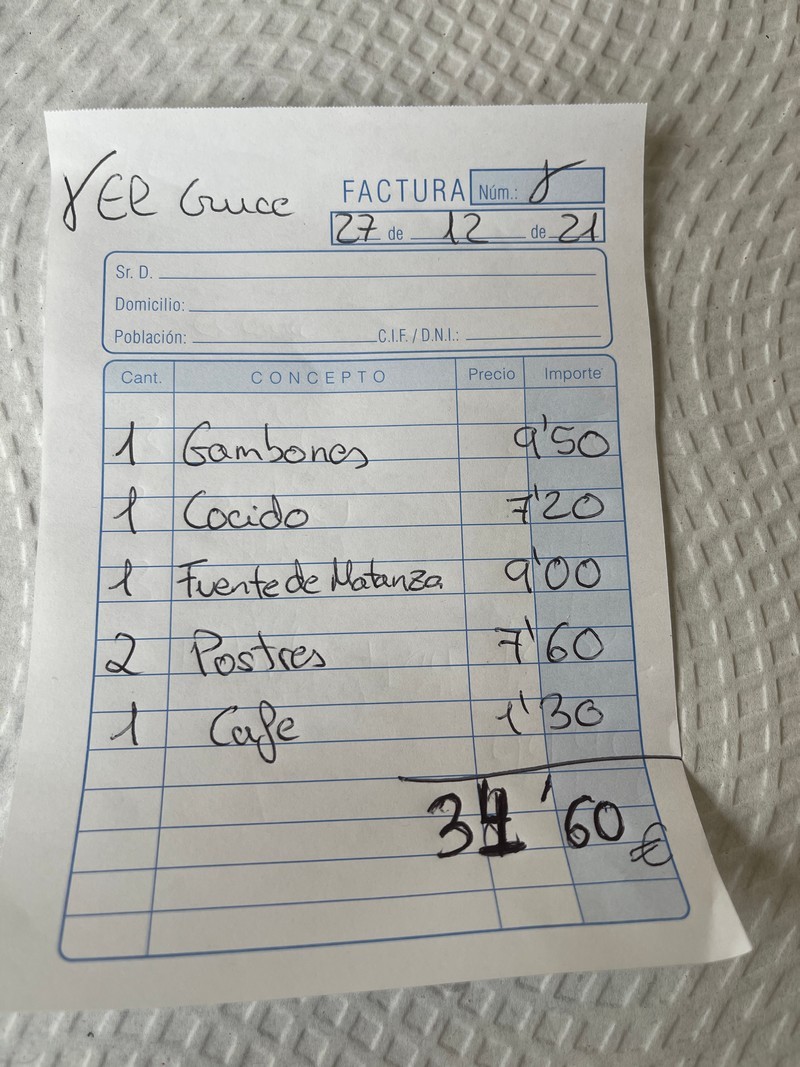 El Cruce
FACTURA Núm.:
27 de 12 de 21
Sr. D.
Domicilio:
Población: C.I.F. / D.N.I.:
Cant. CONCEPTO Precio Importe
1 Gambones 9'50
1 Cocido 7'20
1 Fuente de Matanza 9'00
2 Postres 7'60
1 Cafe 1'30
34'60 €